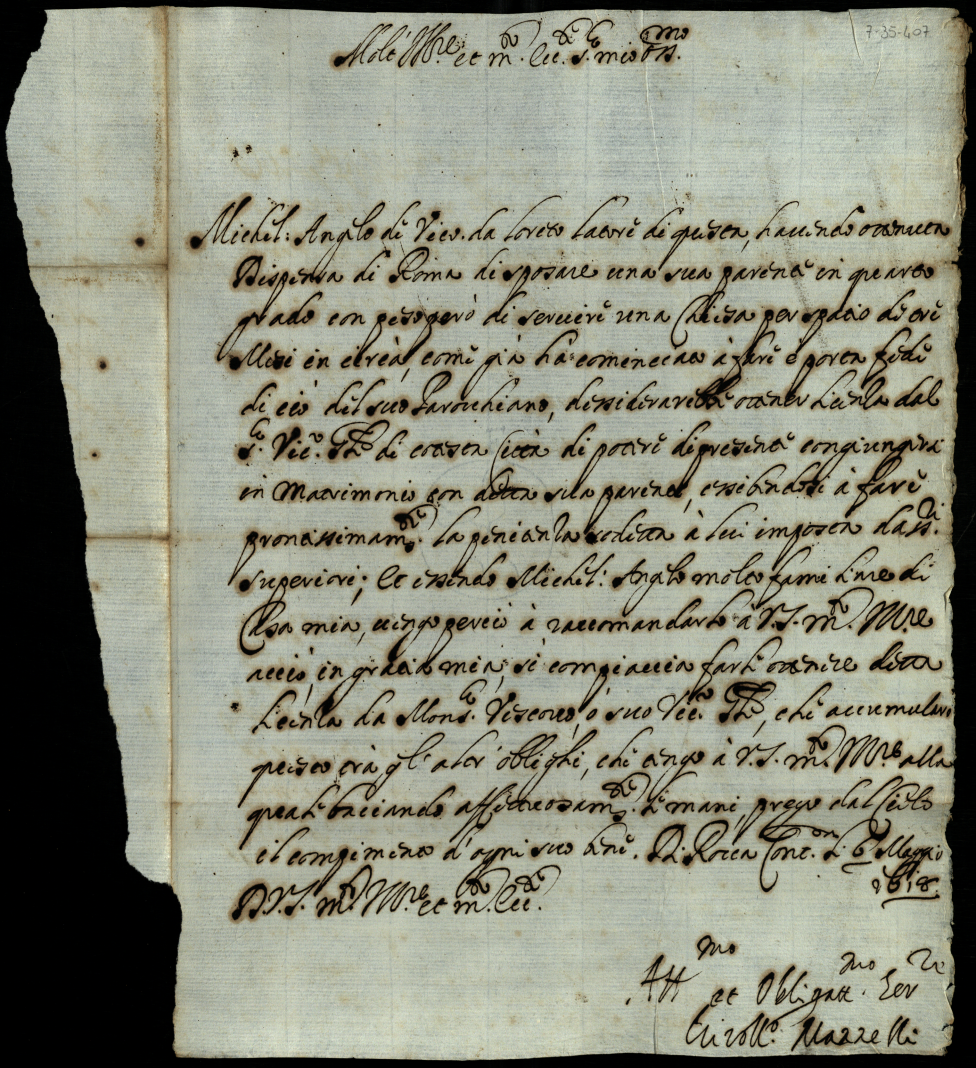 7-35-407
Molt' Ill.re et m.to Ecc.te S.r mio oss.mo
Michel: Angelo di Vico da loreto latore di questa, havendo ottenuta
Dispensa di Roma di sposare una sua parente in quarto
grado con peso però di servire una Chiesa per spatio di tre
Mesi in circa, come già ha cominciato à fare e porta fede
di ciò del suo Parochiano, desiderarebbe ottener licenza dal
S.r Vic.o Gñle di cotesta Città di potere di presente congiungersi
in Matrimonio con detta sua parente, essibendosi à fare
prontissimam.te la penitenza sodetta à lui imposta da ss.ri
superiori; Et essendo Michel: Angelo molto famigliare di
Casa mia, vengo perciò à raccomandarlo à V.S. m.to Ill.re
acciò, in gratia mia, si compiaccia farli ottenere detta
licenza da Mons.r Vescovo, ò suo Vic.o Gñle, che accumularò
questo trà gl'altr'oblighi, che tengo à V.S. m.to Ill.re alla
quale baciando affettuosam.te le mani, prego dal Cielo
il compimento d'ogni suo bene. Di Rocca Cont. li 6 Maggio
1618.
D.V.S. m.to Ill.re et m.to Ecc.te
Aff.mo et Obligatt.mo Ser.re
Mazzelli